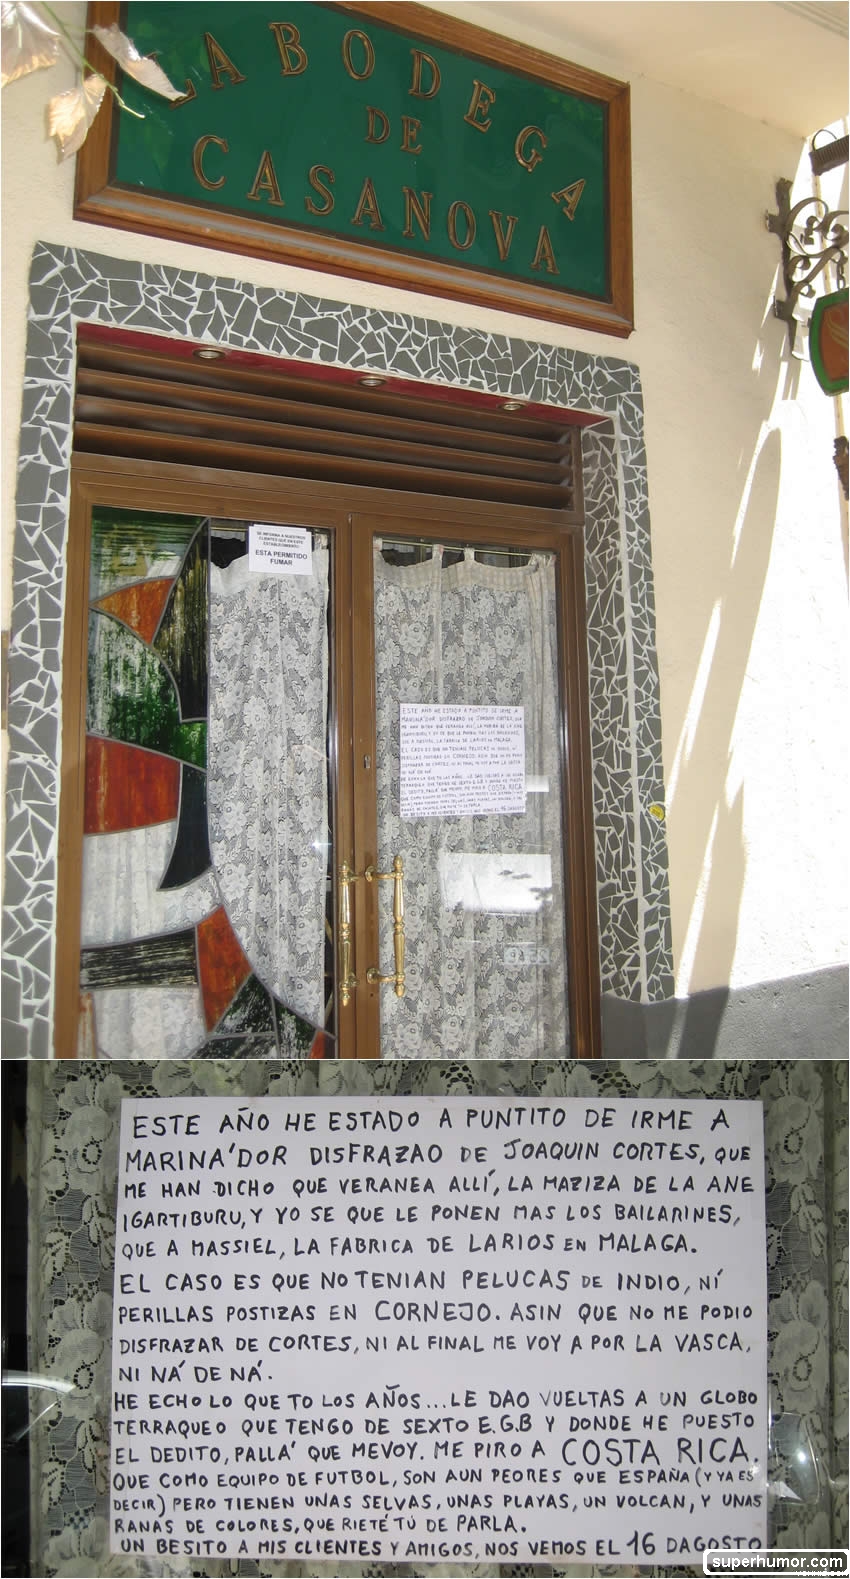 LA BODEGA
DE
CASANOVA
SE INFORMA A NUESTROS
CLIENTES QUE EN ESTE
ESTABLECIMIENTO
ESTA PERMITIDO
FUMAR
ESTE AÑO HE ESTADO A PUNTITO DE IRME A
MARINA'DOR DISFRAZAO DE JOAQUIN CORTES, QUE
ME HAN DICHO QUE VERANEA ALLÍ, LA MAZIZA DE LA ANE
IGARTIBURU, Y YO SE QUE LE PONEN MAS LOS BAILARINES,
QUE A MASSIEL, LA FABRICA DE LARIOS EN MALAGA.
EL CASO ES QUE NO TENIAN PELUCAS DE INDIO, NÍ
PERILLAS POSTIZAS EN CORNEJO. ASIN QUE NO ME PODIO
DISFRAZAR DE CORTES, NI AL FINAL ME VOY A POR LA VASCA,
NI NÁ DE NÁ.
HE ECHO LO QUE TO LOS AÑOS... LE DAO VUELTAS A UN GLOBO
TERRAQUEO QUE TENGO DE SEXTO E.G.B Y DONDE HE PUESTO
EL DEDITO, PALLA' QUE MEVOY. ME PIRO A COSTA RICA,
QUE COMO EQUIPO DE FUTBOL, SON AUN PEORES QUE ESPAÑA (Y YA ES
DECIR) PERO TIENEN UNAS SELVAS, UNAS PLAYAS, UN VOLCAN, Y UNAS
RANAS DE COLORES, QUE RIETÉ TÚ DE PARLA.
UN BESITO A MIS CLIENTES Y AMIGOS, NOS VEMOS EL 16 DAGOSTO
superhumor.com